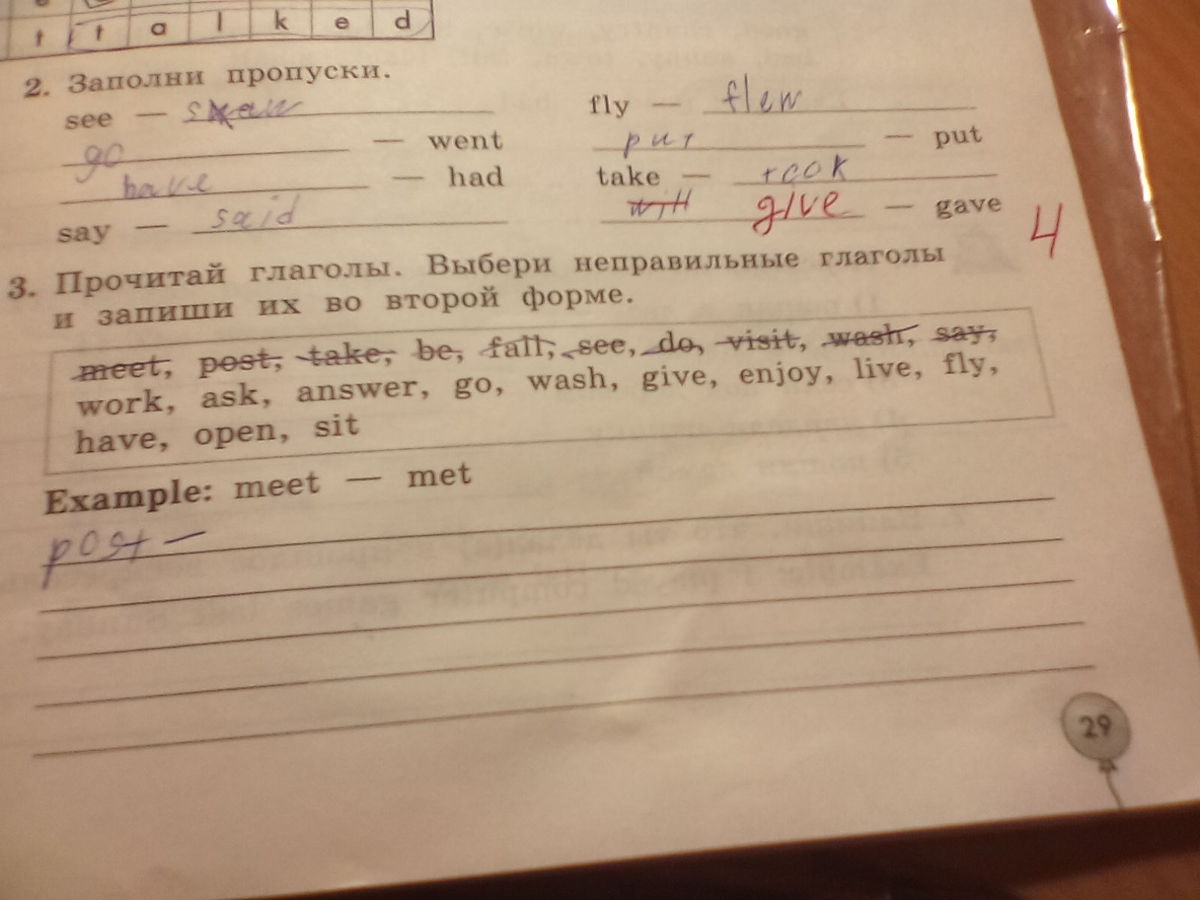 t t a l k e d
2. Заполни пропуски.
see — saw fly — flew
go — went put — put
have — had take — took
say — said give — gave
4
3. Прочитай глаголы. Выбери неправильные глаголы
и запиши их во второй форме.
meet, post, take, be, fall, see, do, visit, wash, say,
work, ask, answer, go, wash, give, enjoy, live, fly,
have, open, sit
Example: meet — met
post —
29